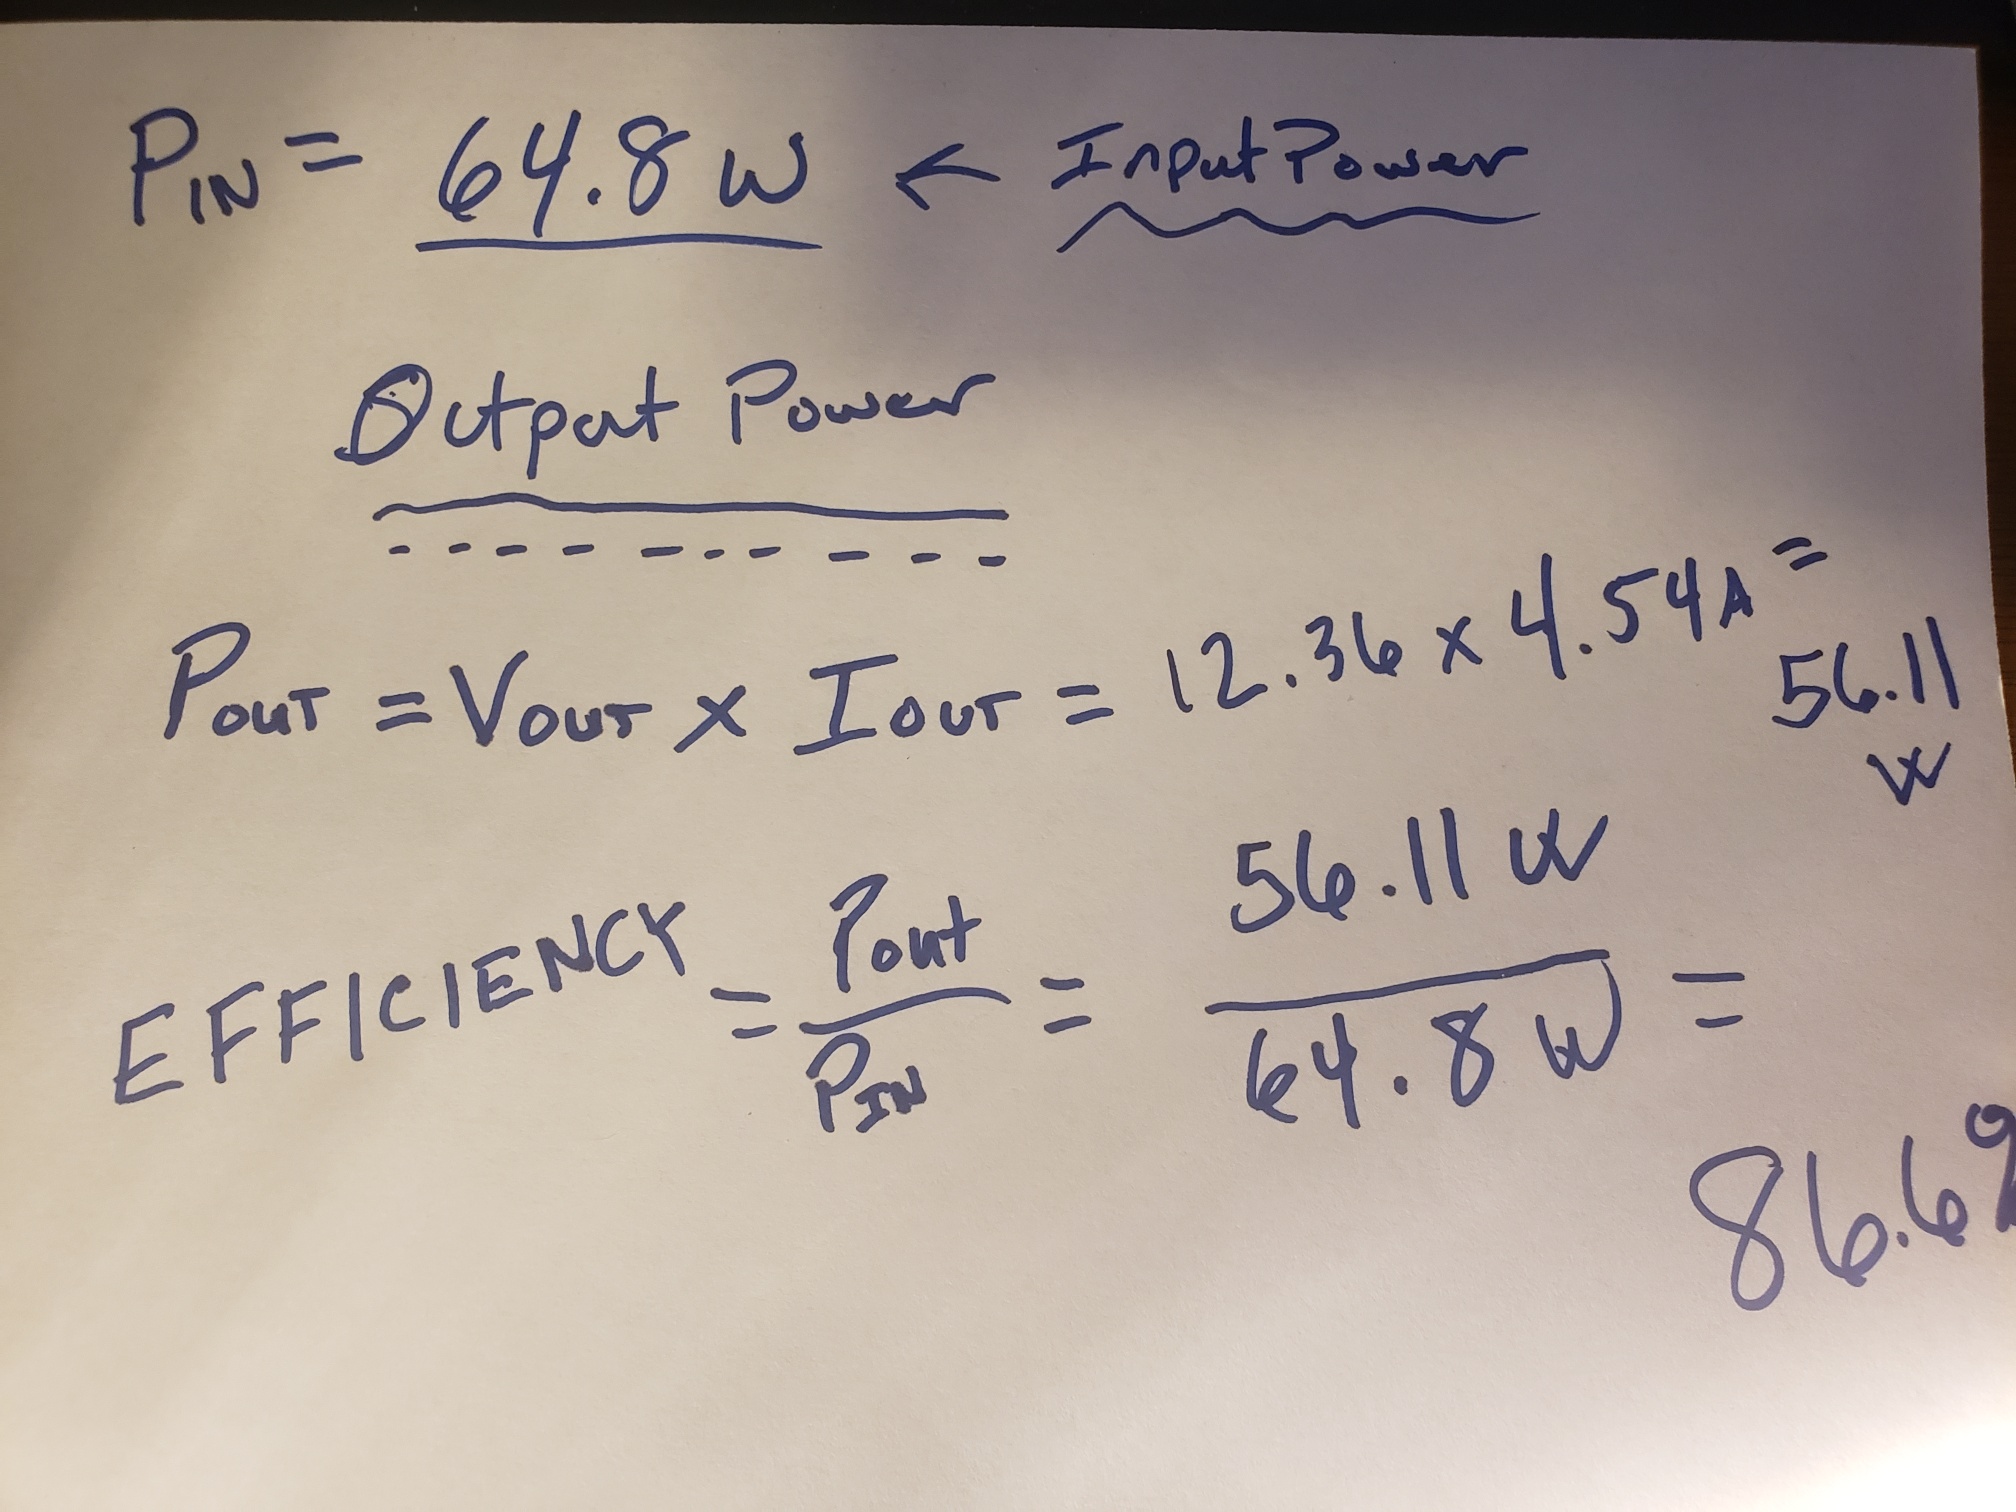 PIN = 64.8 W ← Input Power
Output Power
POUT = VOUT x IOUT = 12.36 x 4.54A =
56.11
W
EFFICIENCY = Pout / PIN = 56.11 W / 64.8 W =
86.6%